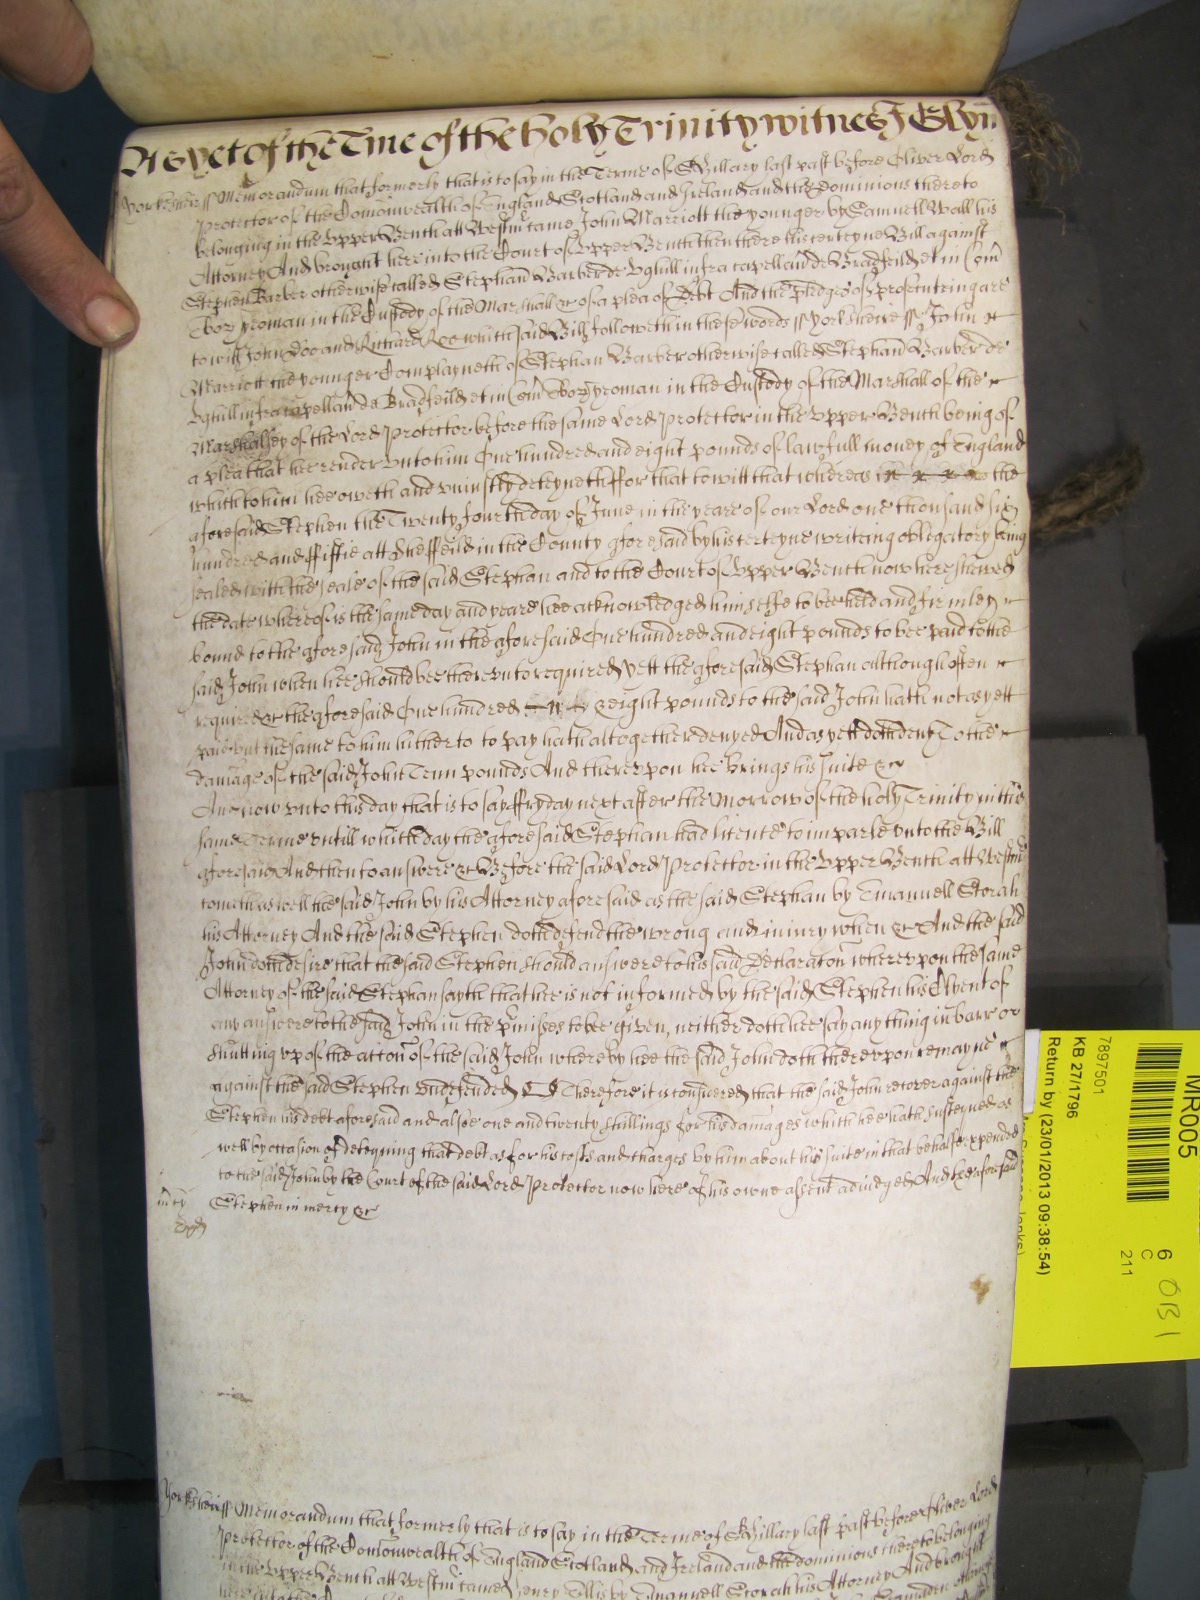 As yet of the Tme of the holy Trinity witnes J Glyn
Yorkesheir ss Memorandum that formerly that is to say in the Terme of St Hillary last past before Oliver Lord
Protector of the Comonwealth of England Scotland and Ireland and the Dominions thereto
belonging in the Upper Bench att Westm came John Marriott the younger by Samuell Wall his
Attorney And brought here into the Court of Upper Bench then there his certeyne Bill against
Stephen Barber otherwise called Stephan Barber de Ughill infra capellam de Bradfeild et in Com
Ebor yeoman in the Custody of the Marshall &c of a plea of Debt And the pledges of prosecuting are
to witt John Doo and Richard Roo which said Bill followeth in these words ss Yorkesheire ss John
Marriott the younger Complayneth of Stephan Barber otherwise called Stephan Barber de
Ughill infra capellam de Bradfeild et in Com Ebor yeoman in the Custody of the Marshall of the
Marshalsey of the Lord Protector before the same Lord Protector in the Upper Bench being of
a plea that hee render unto him One hundred and eight pounds of lawfull money of England
which to him hee oweth and uniustly deteyneth ffor that to witt that whereas the
aforesaid Stephen the Twenty fourth day of June in the yeare of our Lord one thousand six
hundred and ffiftie att Sheffeild in the County aforesaid by his certeyne writeing obligatory being
sealed with the seale of the said Stephan and to the Court of Upper Bench now here shewed
the date whereof is the same day and yeare hee acknowledged himselfe to bee held and firmley
bound to the aforesaid John in the aforesaid One hundred and eight pounds to bee paid to the
said John when hee should bee thereunto required yett the aforesaid Stephan although often
required &c the aforesaid One hundred & eight pounds to the said John hath not as yett
paid but the same to him hitherto to pay hath altogether denyed And as yett doth deny To the
damage of the said John Tenn pounds And thereupon hee brings his suite &c
And now unto this day that is to say ffryday next after the Morrow of the holy Trinity in this
same Terme untill which day the aforesaid Stephan had licence to imparle unto the Bill
aforesaid And then to answere &c Before the said Lord Protector in the Upper Bench att Westm
cometh as well the said John by his Attorney aforesaid as the said Stephan by Emanuell Storah
his Attorney And the said Stephen doth defend the wrong and iniury when &c And the said
John doth desire that the said Stephen should answere to his said Declaraton whereupon the same
Attorney of the said Stephan sayth that hee is not informed by the said Stephen his Clyent of
any answere to the said John in the pmisses to bee given, neither doth hee say any thing in barr or
shutting up of the accon of the said John whereby hee the said John doth thereupon remayne
against the said Stephen undefended Therefore it is considered that the said John recover against the
Stephen his debt aforesaid and alsoe one and twenty shillings for his damages which hee hath susteyned as
well by occasion of deteyning that debt as for his costs and charges by him about his suite in that behalfe expended
to the said John by the Court of the said Lord Protector now here of his owne assent adiudged And the aforesaid
Stephen in mercy &c
Yorkesheir ss Memorandum that formerly that is to say in the Terme of St Hillary last past before Oliver Lord
Protector of the Comonwealth of England Scotland and Ireland and the dominions thereto belonging
in the Upper Bench att Westm came Henry Ellis by Emanuell Storah his Attorney And brought
MR005
7897501
KB 27/1796
Return by (23/01/2013 09:38:54)
6
C
211
OB1